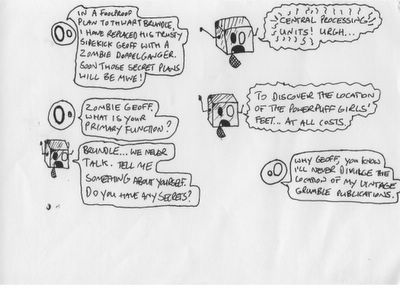 IN A FOOLPROOF
PLAN TO THWART BRUNDLE,
I HAVE REPLACED HIS TRUSTY
SIDEKICK GEOFF WITH A
ZOMBIE DOPPELGANGER.
SOON THOSE SECRET PLANS
WILL BE MINE!
CENTRAL PROCESSING
UNITS! URGH...
ZOMBIE GEOFF,
WHAT IS YOUR
PRIMARY FUNCTION?
TO DISCOVER THE LOCATION
OF THE POWERPUFF GIRLS'
FEET... AT ALL COSTS.
BRUNDLE... WE NEVER
TALK. TELL ME
SOMETHING ABOUT YOURSELF.
DO YOU HAVE ANY SECRETS?
WHY GEOFF, YOU KNOW
I'LL NEVER DIVULGE THE
LOCATION OF MY VINTAGE
GRUMBLE PUBLICATIONS.